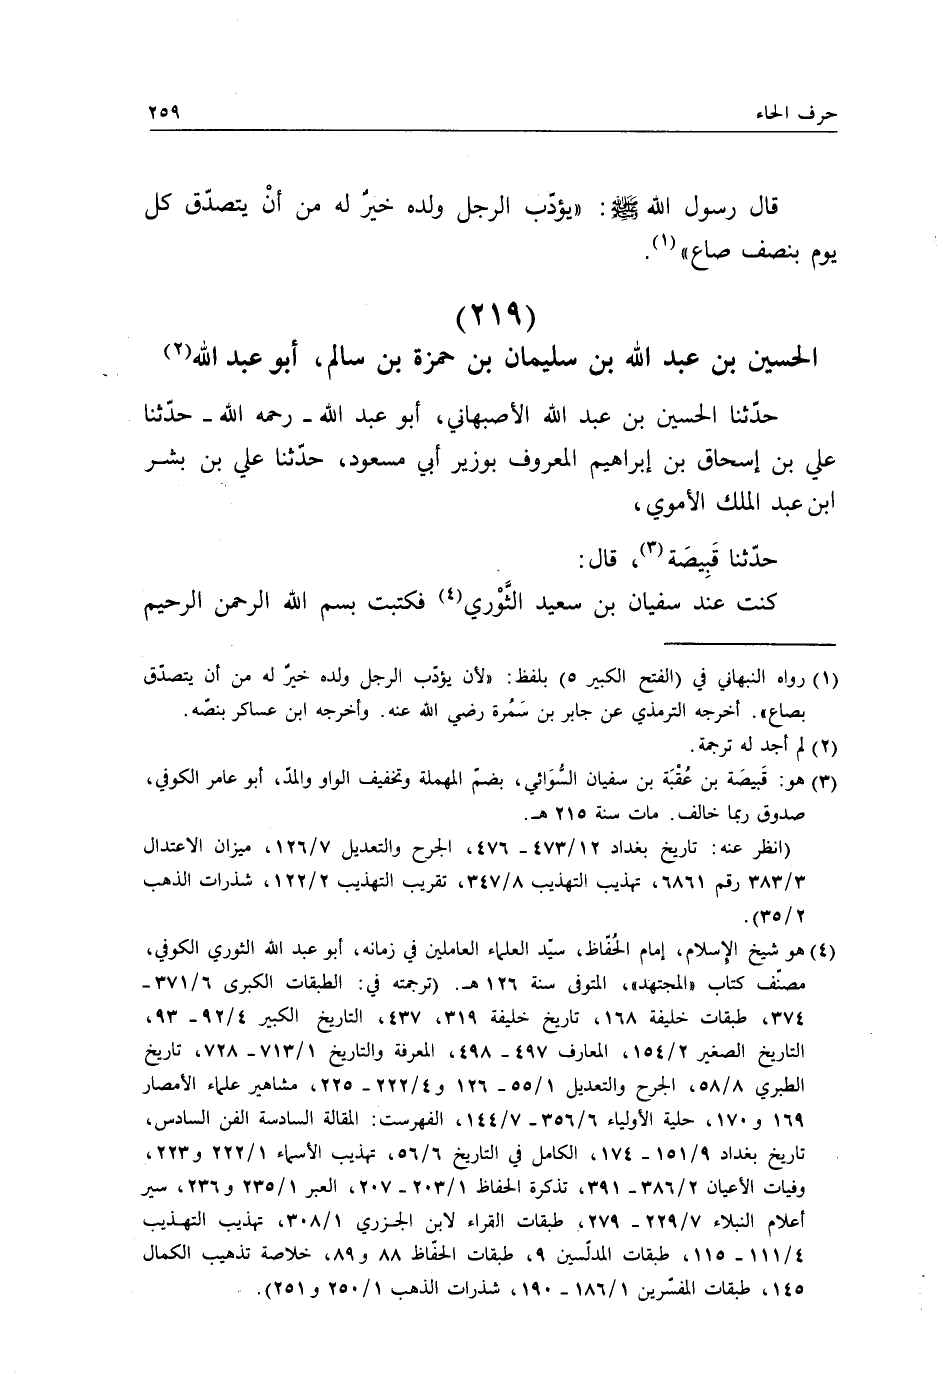 حرف الحاء ٢٥٩
قال رسول الله ﷺ: «يؤدّب الرجل ولده خيرٌ له من أنْ يتصدّق كل
يوم بنصف صاع»(١).
(٢١٩)
الحسين بن عبد الله بن سليمان بن حمزة بن سالم، أبو عبد الله(٢)
حدّثنا الحسين بن عبد الله الأصبهاني، أبو عبد الله ـ رحمه الله ـ حدّثنا
علي بن إسحاق بن إبراهيم المعروف بوزير أبي مسعود، حدّثنا علي بن بشر
ابن عبد الملك الأموي،
حدّثنا قَبِيصَة(٣)، قال:
كنت عند سفيان بن سعيد الثَّوْري(٤) فكتبت بسم الله الرحمن الرحيم
(١) رواه النبهاني في (الفتح الكبير ٥) بلفظ: «لأن يؤدّب الرجل ولده خيرٌ له من أن يتصدّق
بصاع». أخرجه الترمذي عن جابر بن سَمُرة رضي الله عنه. وأخرجه ابن عساكر بنصّه.
(٢) لم أجد له ترجمة.
(٣) هو: قَبيصَة بن عُقْبَة بن سفيان السُّوَائي، بضمّ المهملة وتخفيف الواو والمدّ، أبو عامر الكوفي،
صدوق ربما خالف. مات سنة ٢١٥ هـ.
(انظر عنه: تاريخ بغداد ٤٧٣/١٢ ـ ٤٧٦، الجرح والتعديل ١٢٦/٧، ميزان الاعتدال
٣٨٣/٣ رقم ٦٨٦١، تهذيب التهذيب ٣٤٧/٨، تقريب التهذيب ١٢٢/٢، شذرات الذهب
٣٥/٢).
(٤) هو شيخ الإسلام، إمام الحُفّاظ، سيّد العلماء العاملين في زمانه، أبو عبد الله الثوري الكوفي،
مصنّف كتاب «المجتهد»، المتوفى سنة ١٢٦ هـ. (ترجمته في: الطبقات الكبرى ٣٧١/٦ ـ
٣٧٤، طبقات خليفة ١٦٨، تاريخ خليفة ٣١٩، ٤٣٧، التاريخ الكبير ٩٢/٤ ـ ٩٣،
التاريخ الصغير ١٥٤/٢، المعارف ٤٩٧ ـ ٤٩٨، المعرفة والتاريخ ٧١٣/١ ـ ٧٢٨، تاريخ
الطبري ٥٨/٨، الجرح والتعديل ٥٥/١ ـ ١٢٦ و٢٢٢/٤ ـ ٢٢٥، مشاهير علماء الأمصار
١٦٩ و١٧٠، حلية الأولياء ٣٥٦/٦ ـ ١٤٤/٧، الفهرست: المقالة السادسة الفن السادس،
تاريخ بغداد ١٥١/٩ ـ ١٧٤، الكامل في التاريخ ٥٦/٦، تهذيب الأسماء ٢٢٢/١ و٢٢٣،
وفيات الأعيان ٣٨٦/٢ ـ ٣٩١، تذكرة الحفاظ ٢٠٣/١ ـ ٢٠٧، العبر ٢٣٥/١ و٢٣٦، سير
أعلام النبلاء ٢٢٩/٧ ـ ٢٧٩، طبقات القراء لابن الجزري ٣٠٨/١، تهذيب التهذيب
١١١/٤ ـ ١١٥، طبقات المدلّسين ٩، طبقات الحفّاظ ٨٨ و٨٩، خلاصة تذهيب الكمال
١٤٥، طبقات المفسّرين ١٨٦/١ ـ ١٩٠، شذرات الذهب ٢٥٠/١ و٢٥١).